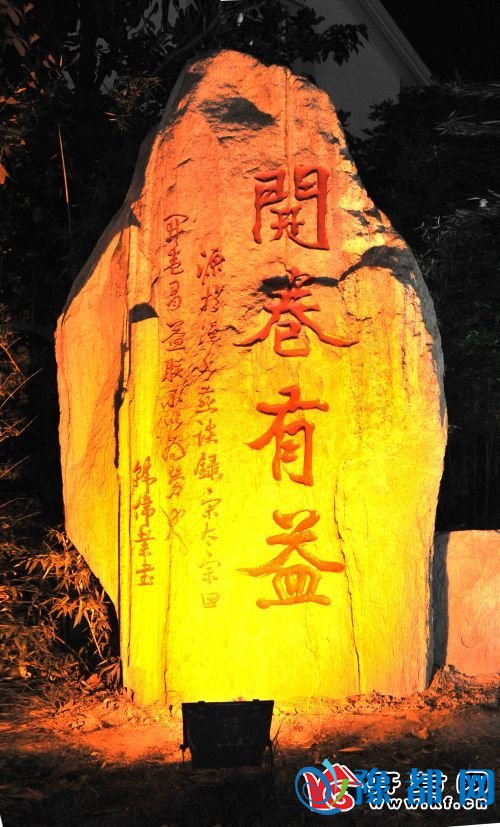 開卷有益
源於澠水燕談録宋太宗曰
開卷有益朕不以为勞也
韓偉業書
豫都网
www.kf.cn